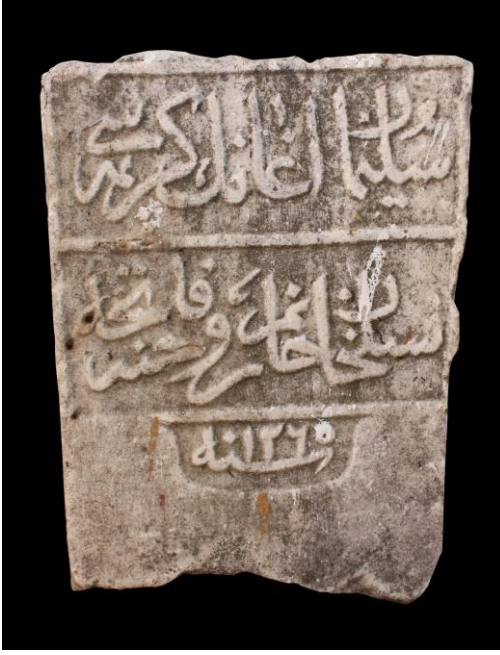 سليمان اغانك كريمه سى
خانم روحنه فاتحه
سنه ١٢٦٥